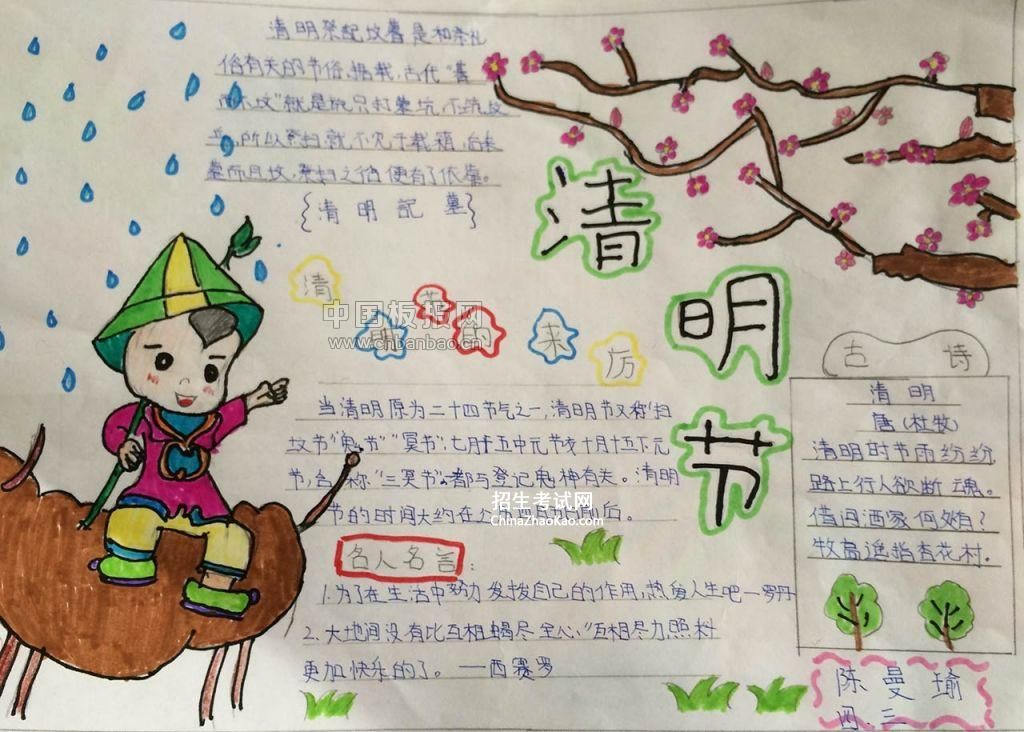 清明祭配坟暮是和丧礼
俗有关的节俗。据载，古代“墓
而不坟”就是说只打墓坑，不筑坟
丘，所以祭扫就不见于载籍，后来
墓而且坟，祭扫之俗便有了依靠。
{清明記墓}
清明节
清明节的来历
当清明原为二十四节气之一，清明节又称“扫
坟节”“鬼节”“冥节”，七月十五中元节及十月十五下元
节，合称“三冥节”。都与登记鬼神有关。清明
节的时间大约在
前后。
名人名言：
1.为了在生活中努力发拨自己的作用，热爱人生吧—罗丹
2.大地间没有比互相竭尽全心、互相尽力照料
更加快乐的了。——西赛罗
古诗
清明
唐（杜牧）
清明时节雨纷纷，
路上行人欲断魂。
借问酒家何处有？
牧童遥指杏花村。
陈曼瑜
四.三
中国板报网
www.chbanbao.cn
招生考试网
ChinaZhaoKao.com